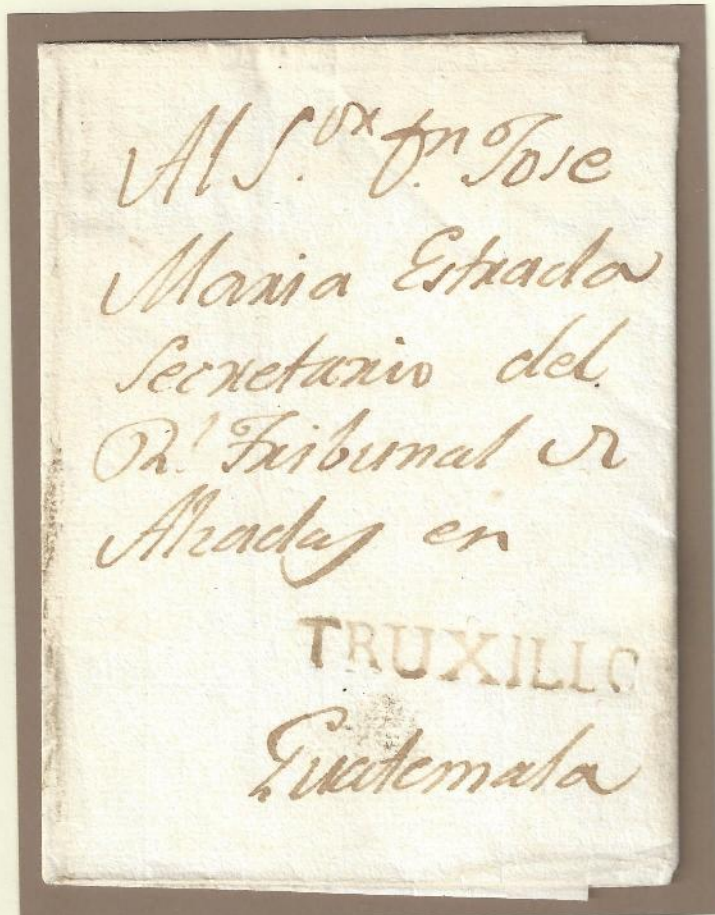 Al S.ᵒʳ Dⁿ Jose
Maria Estrada
Secretario del
Rˡ. Tribunal de
Alzadas en
TRUXILLO
Guatemala